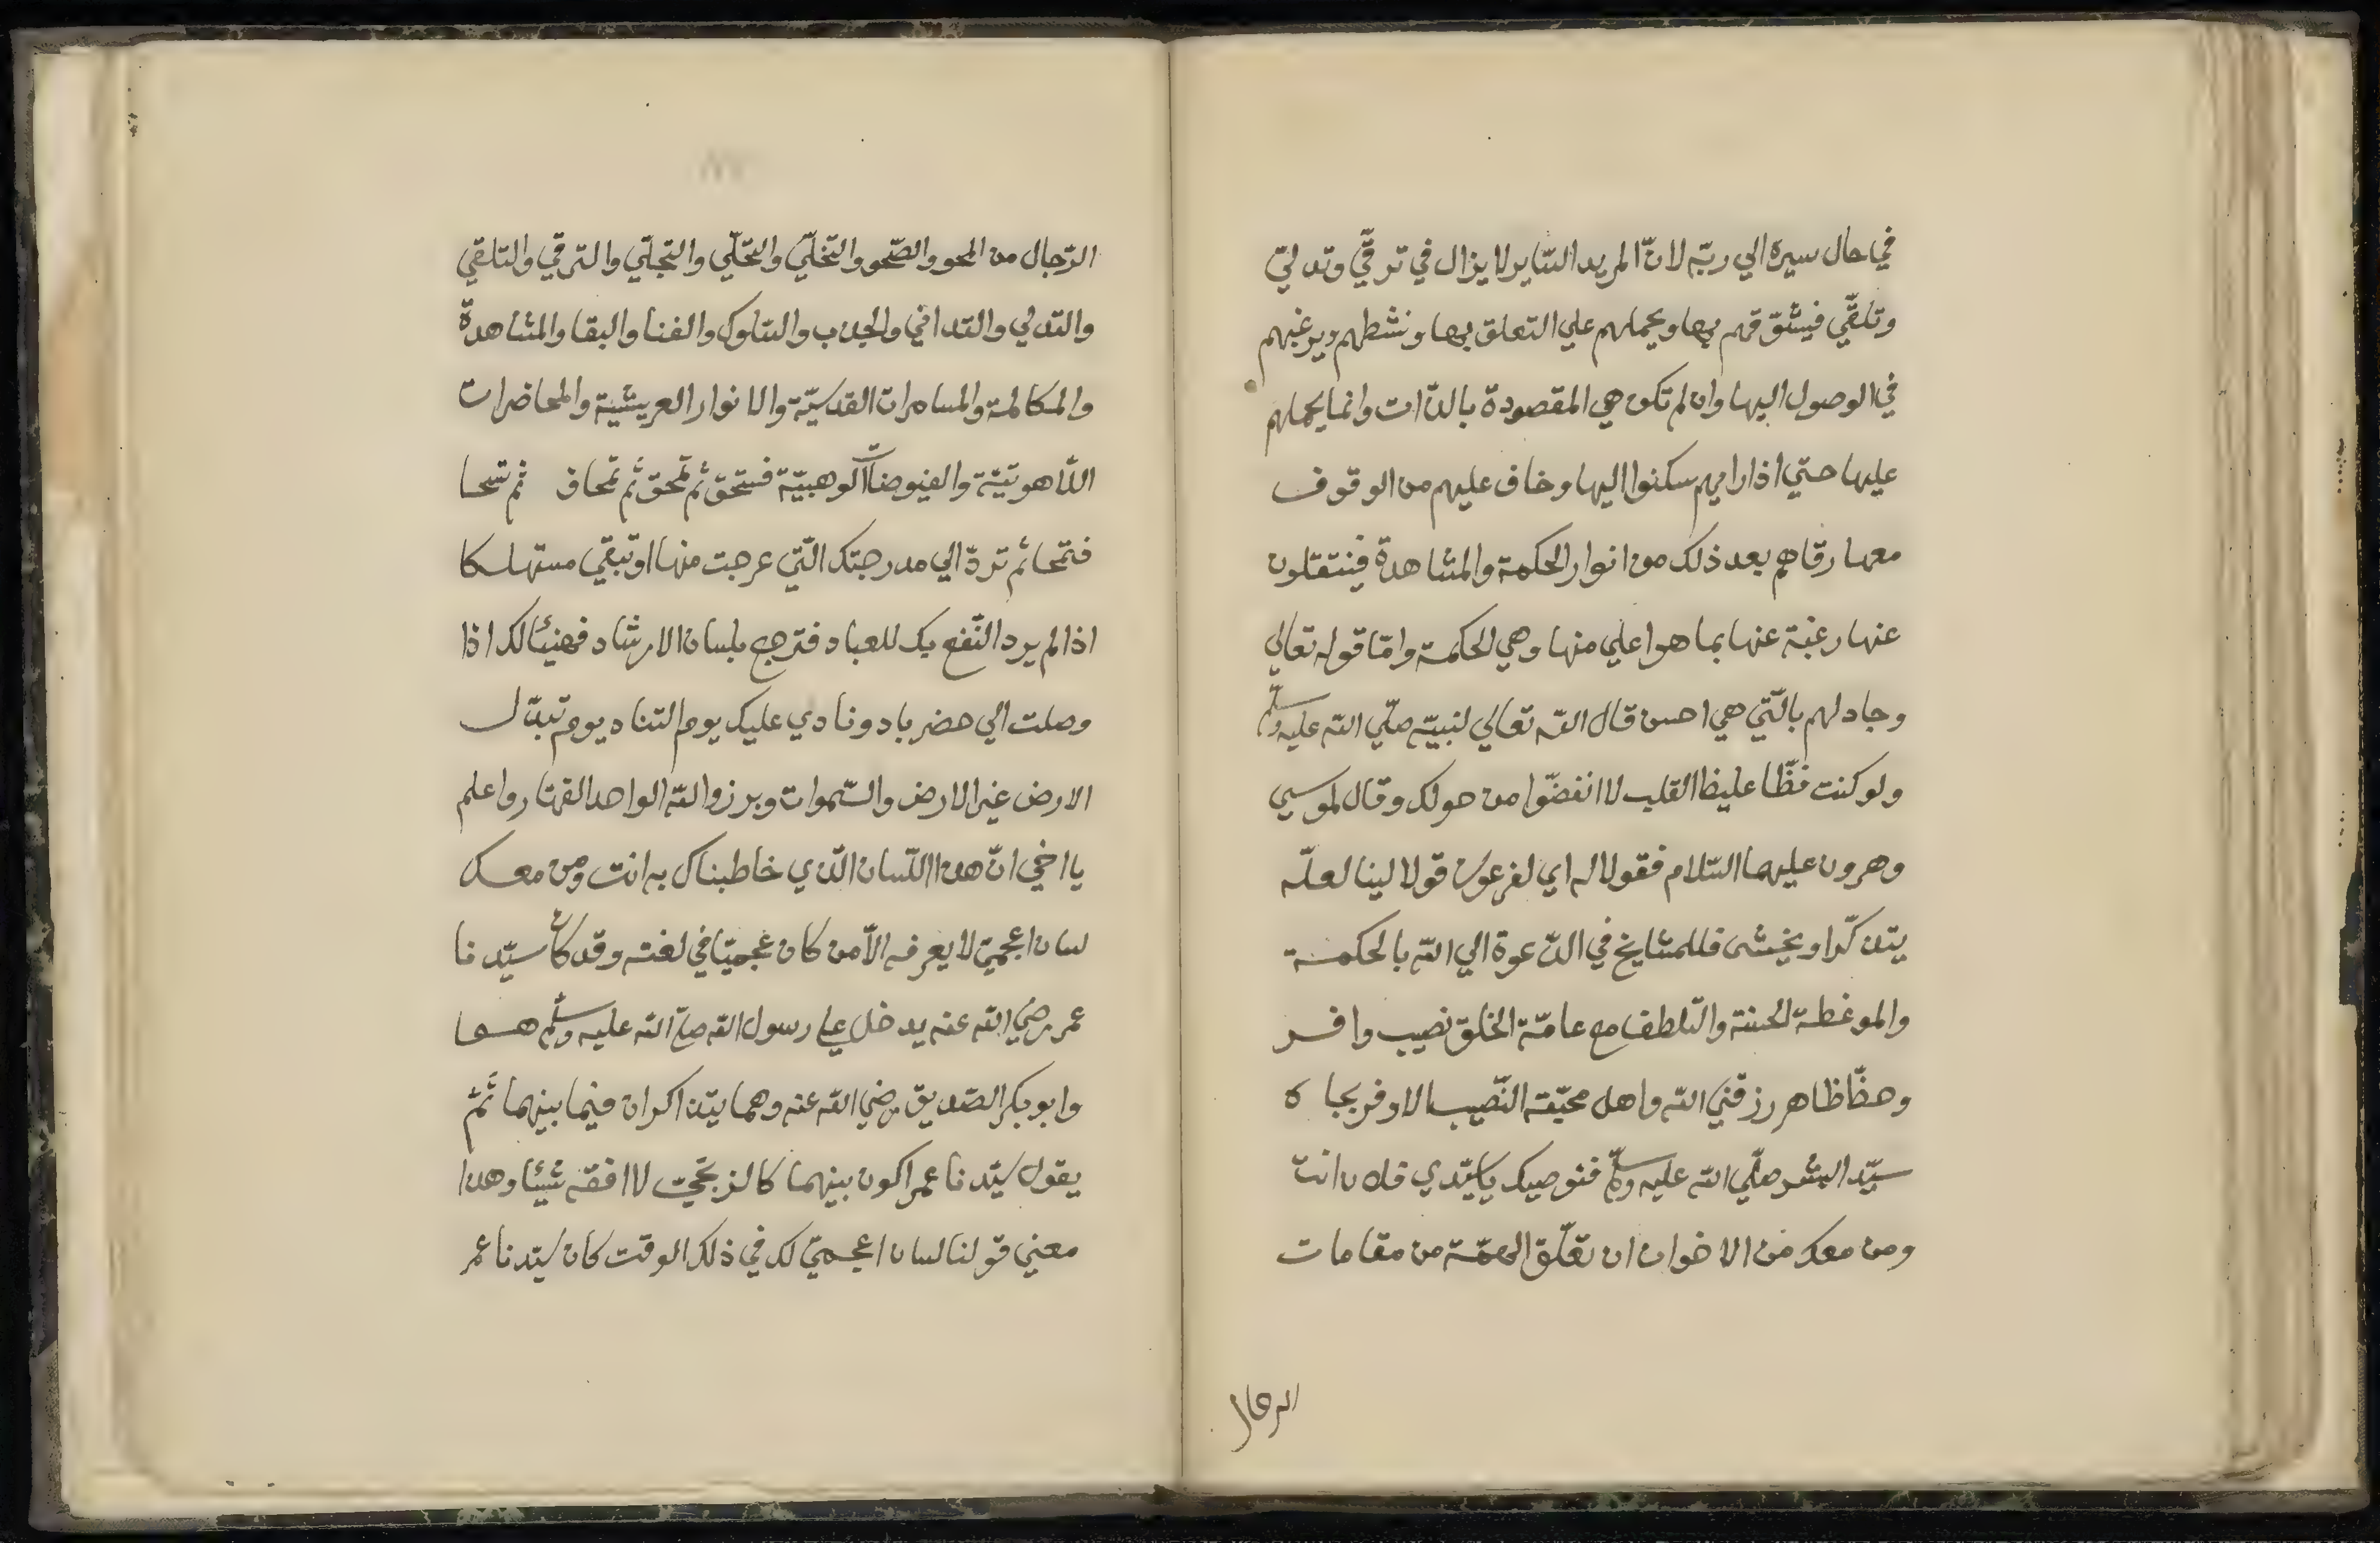 في حال سيره الي ربّه لانّ المريد السّاير لا يزال في ترقّي وتدلّي
وتلقّي فيشوّقهم بها ويحملهم علي التعلق بها ونشطهم ويرغبهم
في الوصول اليها وان لم تكن هي المقصودة بالذّات وانما يحملهم
عليها حتي اذا راهم سكنوا اليها وخاف عليهم من الوقوف
معها رقاهم بعد ذلك من انوار الحكمة والمشاهدة فينتقلون
عنها رغبة عنها بما هو اعلي منها وهي الحكمة وامّا قوله تعالي
وجادلهم بالّتي هي احسن قال الله تعالي لنبيّه صلّي الله عليه وسلّم
ولو كنت فظّا غليظ القلب لا انفضّوا من حولك وقال لموسي
وهرون عليهما السّلام فقولا له اي لفرعون قولا لينا لعلّه
يتذكّر او يخشى فللمشايخ في الدّعوة الي الله بالحكمة
والموعظة الحسنة والتلطف مع عامّة الخلق نصيب وافر
وحظّا ظاهر رزقني الله واهل محبّته النّصيب الاوفر بجاه
سيّد البشر صلّي الله عليه وسلّم فنوصيك يا سيّدي فلان انت
ومن معك من الاخوان ان تعلّق الهمّة من مقامات
الرجال
الرّجال من المحو والصّحو والتّخلّي والتحلّي والتجلّي والترقي والتلقي
والتدلي والتداني والجذب والسّلوك والفنا والبقا والمشاهدة
والمكالمة والمسامرات القدسيّة والانوار العريشية والمحاضرات
اللاهوتيّة والفيوضات الوهبيّة فستحق ثم تمحق ثم تمحاق ثم تسحا
فتمحا ثم تردّ الي مدرجتك الّتي عرجت منها او تبقي مستهلكا
اذا لم يرد النّفع بك للعباد فترجع بلسان الارشاد فهنيئا لك اذا
وصلت الي حضر باد ونادي عليك يوم التناد يوم تبدّل
الارض غير الارض والسّموات وبرزوا لله الواحد القهّار واعلم
يا اخي انّ هذا اللّسان الّذي خاطبناك به انت ومن معك
لسان اعجميّ لا يعرفه الاّ من كان عجميّا في لغته وقد كان سيّدنا
عمر رضي الله عنه يدخل علي رسول الله صلّي الله عليه وسلّم هما
وابو بكر الصّديق رضي الله عنه وهما يتذاكران فيما بينهما ثمّ
يقول سيّدنا عمر اكون بينهما كالزنجيّ لا افقه شيئا وهذا
معني قولنا لسان اعجميّ لك في ذلك الوقت كان سيّدنا عمر